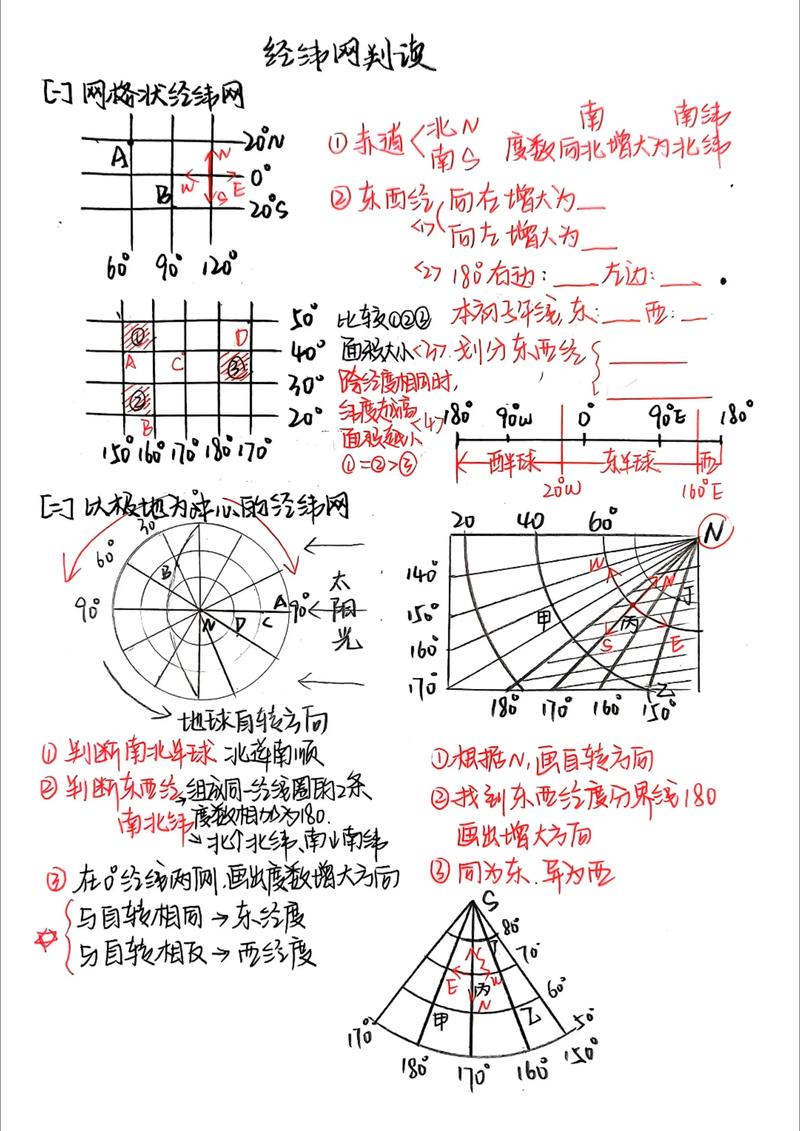 经纬网判读
[一] 网格状经纬网
A
B
N
W
E
S
20°N
0°
20°S
60° 90° 120°
① 赤道 北N
南S
南 南纬
度数向北增大为北纬
② 东西经 <1> 向右增大为__
向左增大为__
<2> 180°右边：__ 左边：__
本初子午线 东：__ 西：__
<3> 划分东西经
① D
A C ③
②
B
50°
40°
30°
20°
150° 160° 170° 180° 170°
比较①②③
面积大小
跨经度相同时，
纬度越高
面积越小
①=②>③
<4>
180° 90°W 0° 90°E 180°
西半球 东半球 西
20°W 160°E
[二] 以极地为中心的经纬网
30°
60°
90°
B
N D C A
90°
太阳光
地球自转方向
20 40 60° N
140°
150°
160°
170°
甲 丙 丁 乙
W N S E
180° 170° 160° 150°
① 判断南北半球 北逆南顺
② 判断东西经 组成同一经线圈的2条
度数相加为180.
南北纬 北个北纬、南↓南纬
③ 在0°经线两侧，画出度数增大方向
与自转相同→东经度
与自转相反→西经度
① 根据N，画自转方向
② 找到东西经度分界线180
画出增大方向
③ 同为东、异为西
S
80°
70°
60°
50°
丁
S
E W
丙
N
甲 乙
170° 180° 170° 160° 150°